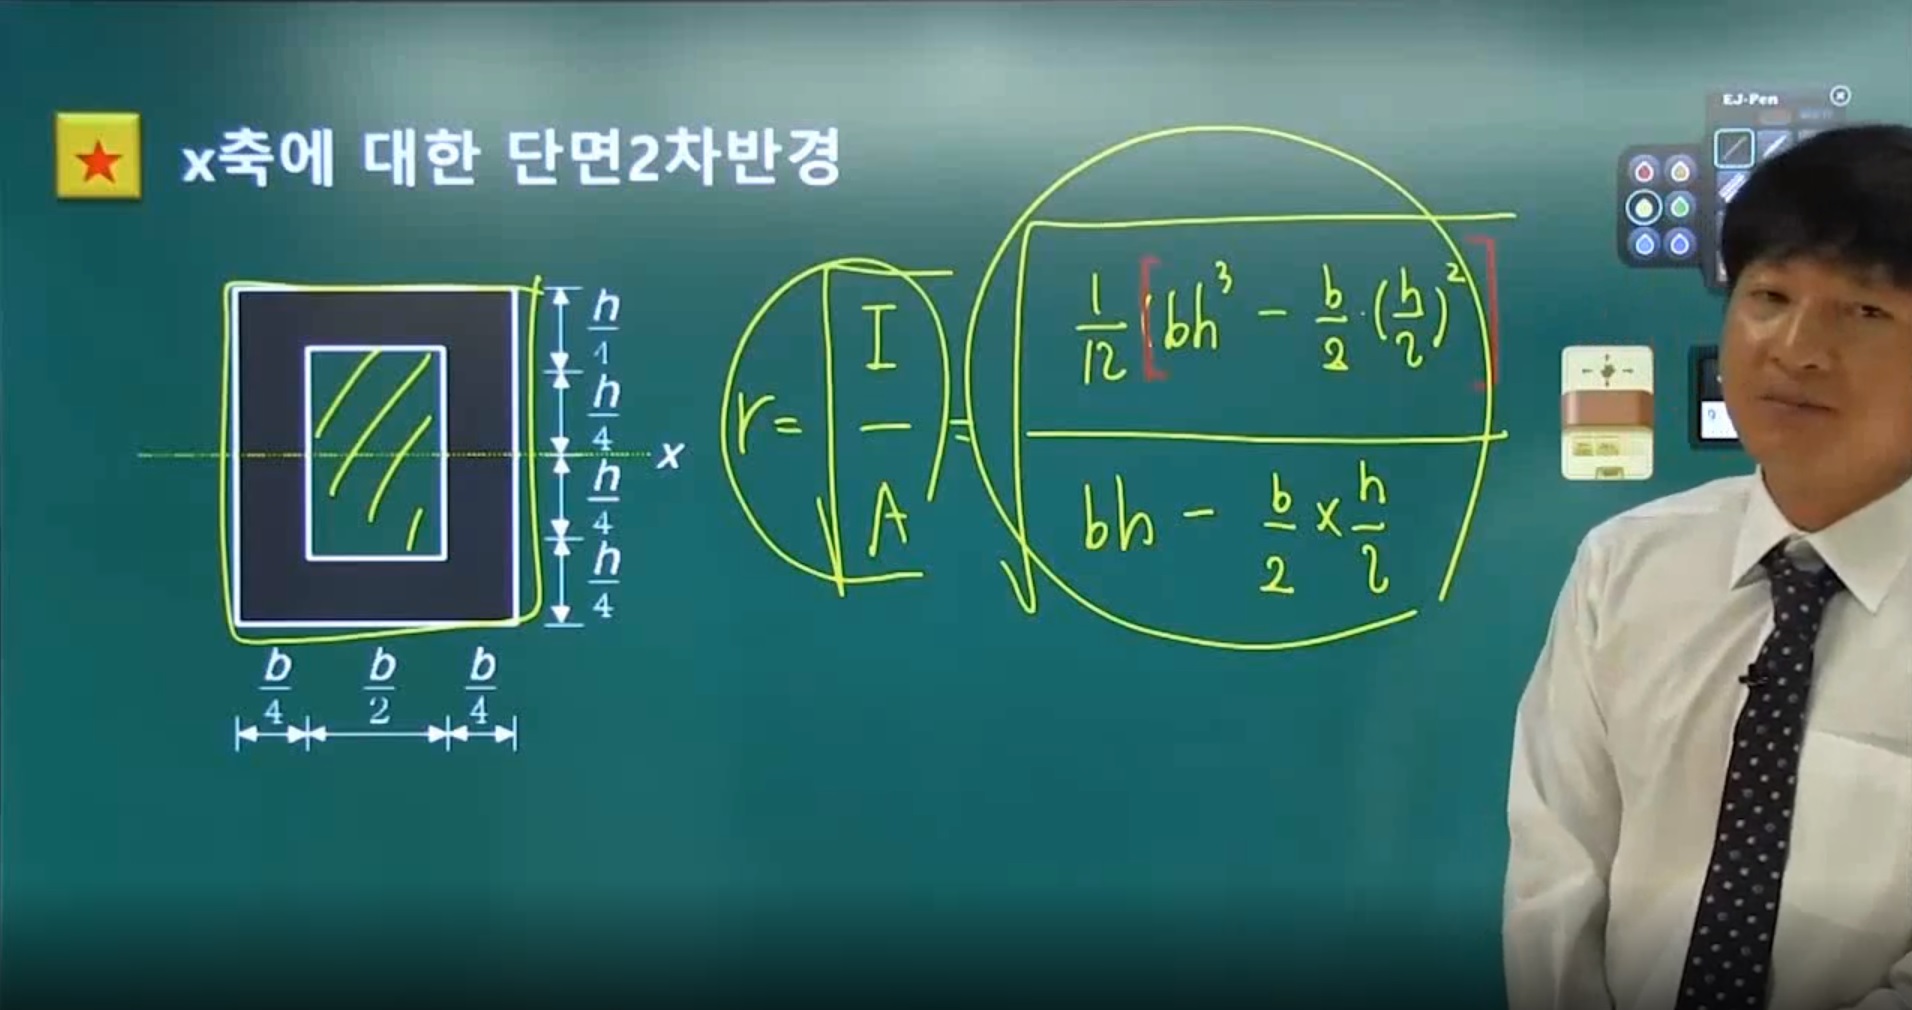 EJ-Pen
x축에 대한 단면2차반경
h/4
h/4
h/4
h/4
x
b/4 b/2 b/4
r = √(I/A) = √((1/12 [bh³ - b/2 · (h/2)²]) / (bh - b/2 × h/2))
9